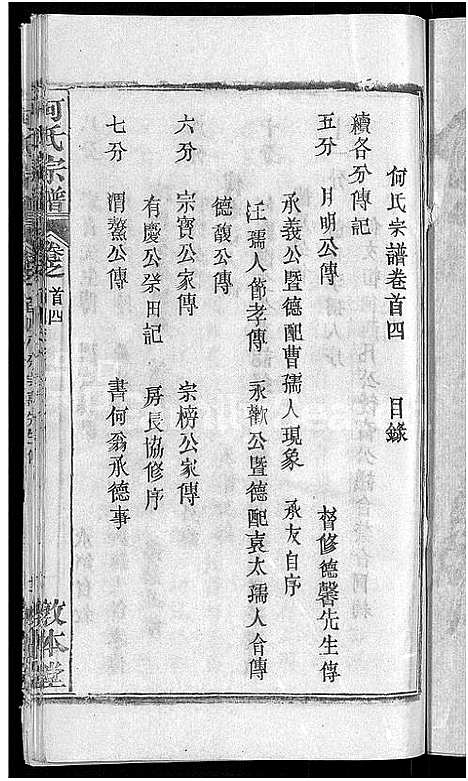 何氏宗譜卷首四　目錄
續各分傳記
五分　月明公傳　督修德馨先生傳
承義公暨德配曹孺人現象　承友自序
汪孺人節孝傳　永歡公暨德配袁太孺人合傳
德馥公傳
六分　宗寶公家傳　宗榜公家傳
有慶公祭田記　房長協修序
七分　渭鰲公傳　書何翁承德事
何氏宗譜　卷之首四　敦本堂